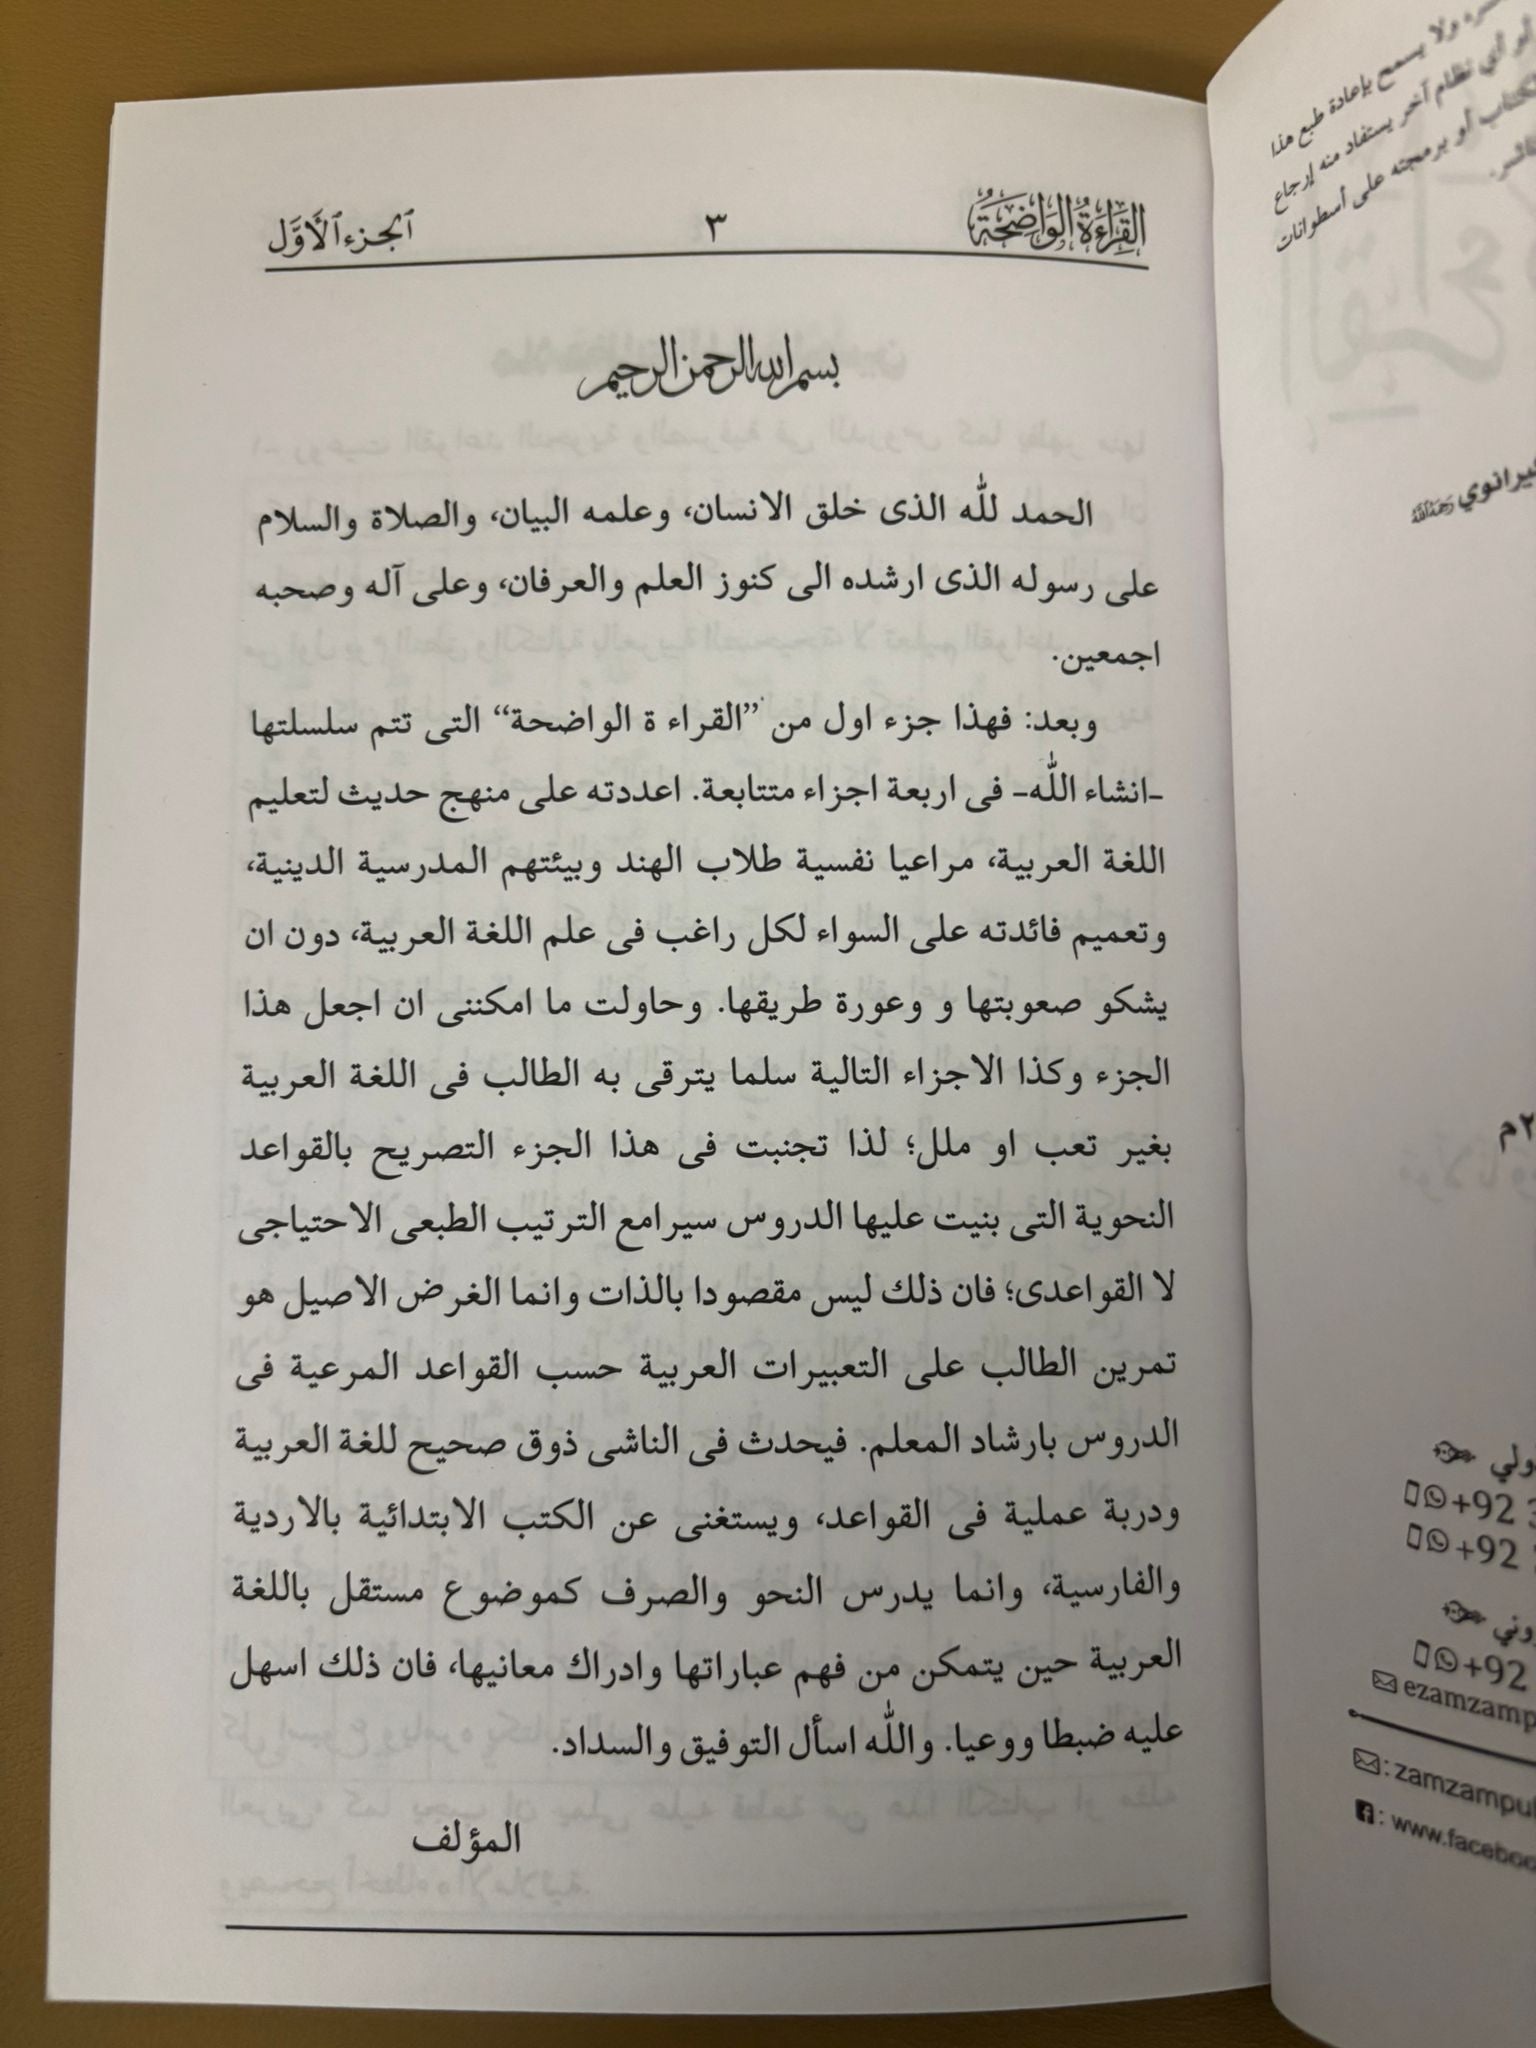 القِرَاءَةُ الوَاضِحَةُ ٣ ٱلجزء ٱلأَوَّل
بسم الله الرحمن الرحيم
الحمد لله الذى خلق الانسان، وعلمه البيان، والصلاة والسلام
على رسوله الذى ارشده الى كنوز العلم والعرفان، وعلى آله وصحبه
اجمعين.
وبعد: فهذا جزء اول من ”القراء ة الواضحة“ التى تتم سلسلتها
-انشاء الله- فى اربعة اجزاء متتابعة. اعددته على منهج حديث لتعليم
اللغة العربية، مراعيا نفسية طلاب الهند وبيئتهم المدرسية الدينية،
وتعميم فائدته على السواء لكل راغب فى علم اللغة العربية، دون ان
يشكو صعوبتها و وعورة طريقها. وحاولت ما امكننى ان اجعل هذا
الجزء وكذا الاجزاء التالية سلما يترقى به الطالب فى اللغة العربية
بغير تعب او ملل؛ لذا تجنبت فى هذا الجزء التصريح بالقواعد
النحوية التى بنيت عليها الدروس سيرامع الترتيب الطبعى الاحتياجى
لا القواعدى؛ فان ذلك ليس مقصودا بالذات وانما الغرض الاصيل هو
تمرين الطالب على التعبيرات العربية حسب القواعد المرعية فى
الدروس بارشاد المعلم. فيحدث فى الناشى ذوق صحيح للغة العربية
ودربة عملية فى القواعد، ويستغنى عن الكتب الابتدائية بالاردية
والفارسية، وانما يدرس النحو والصرف كموضوع مستقل باللغة
العربية حين يتمكن من فهم عباراتها وادراك معانيها، فان ذلك اسهل
عليه ضبطا ووعيا. والله اسأل التوفيق والسداد.
المؤلف
ولا يسمح بإعادة طبع هذا
أو أي نظام آخر يستفاد منه إرجاع
أو برمجته على أسطوانات
+92
+92
+92
ezamzamp
: zamzampu
: www.faceboo